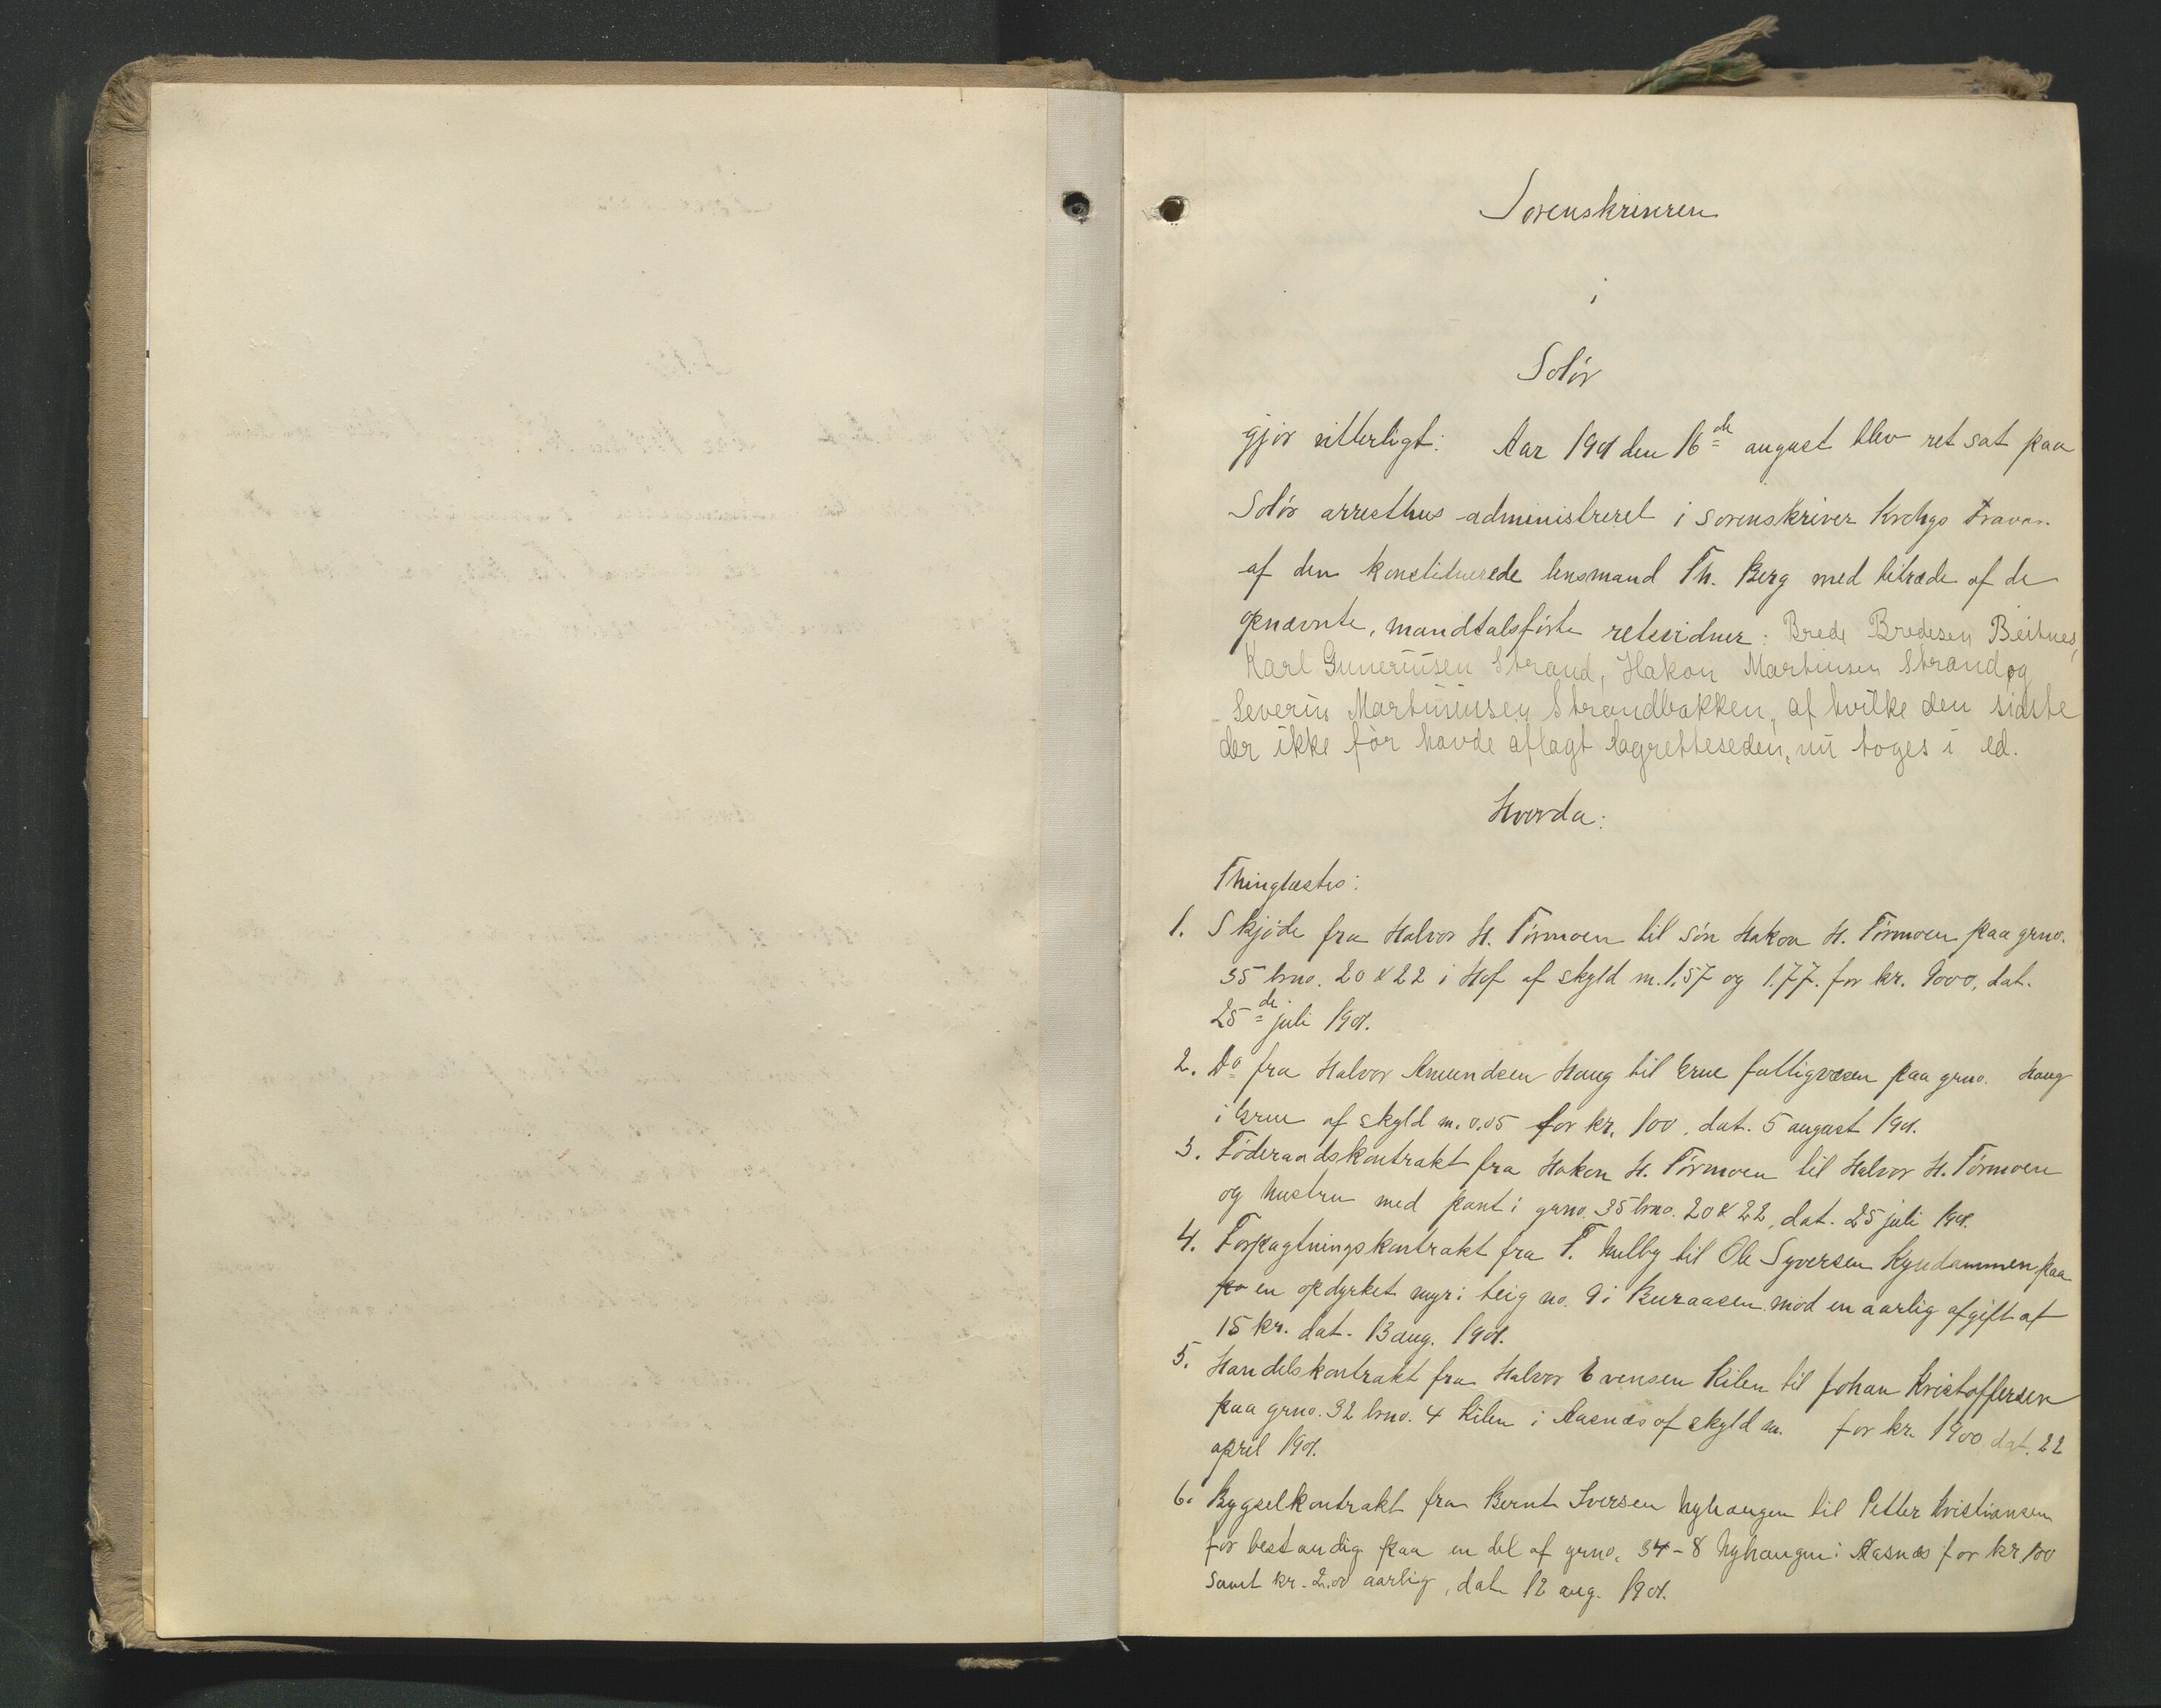 Sorenskriveren
i
Solør
gjør vitterligt: Aar 1901 den 16de august blev ret sat paa
Solør arresthus administreret i sorenskriver Krohgs fravær
af den konstituerede lensmand Th. Berg med bitræde af de
opnævnte, mandtalsførte retsvidner: Brede Bredesen Beitnes,
Karl Guneriusen Strand, Hakon Martinsen Strand og
Severin Martiniusen Strandbakken, af hvilke den sidste
der ikke før havde aflagt lagretteseden, nu toges i ed.
Hvorda:
Thinglæstes:
1. Skjøde fra Halvor H. Tørmoen til søn Hakon H. Tørmoen paa grno.
35 brno. 20 & 22 i Hof af skyld m. 1.57 og 1.77. for kr. 9000, dat.
25de juli 1901.
2. Do fra Halvor Amundsen Haug til Grue fattigvæsen paa grno. Haug
i Grue af skyld m. 0.05 for kr. 100, dat. 5 august 1901.
3. Føderaadskontrakt fra Hakon H. Tørmoen til Halvor H. Tørmoen
og hustru med pant i grno. 35 brno. 20 & 22, dat. 25 juli 1901.
4. Forpagtningskontrakt fra T. Hulby til Ole Syversen Kyndammen paa
pa en opdyrket myr i teig no. 9 i Buraasen mod en aarlig afgift af
15 kr. dat. 13 aug. 1901.
5. Handelskontrakt fra Halvor Evensen Kilen til Johan Kristoffersen
paa grno. 32 brno. 4 Kilen i Aasnæs af skyld m. for kr. 1900 dat. 22
april 1901.
6. Bygselkontrakt fra Bernt Iversen Nyhaugen til Petter Kristiansen
for bestandig paa en del af grno. 34-8 Nyhaugen i Aasnæs for kr 100
samt kr. 2.00 aarlig, dat 12 aug. 1901.